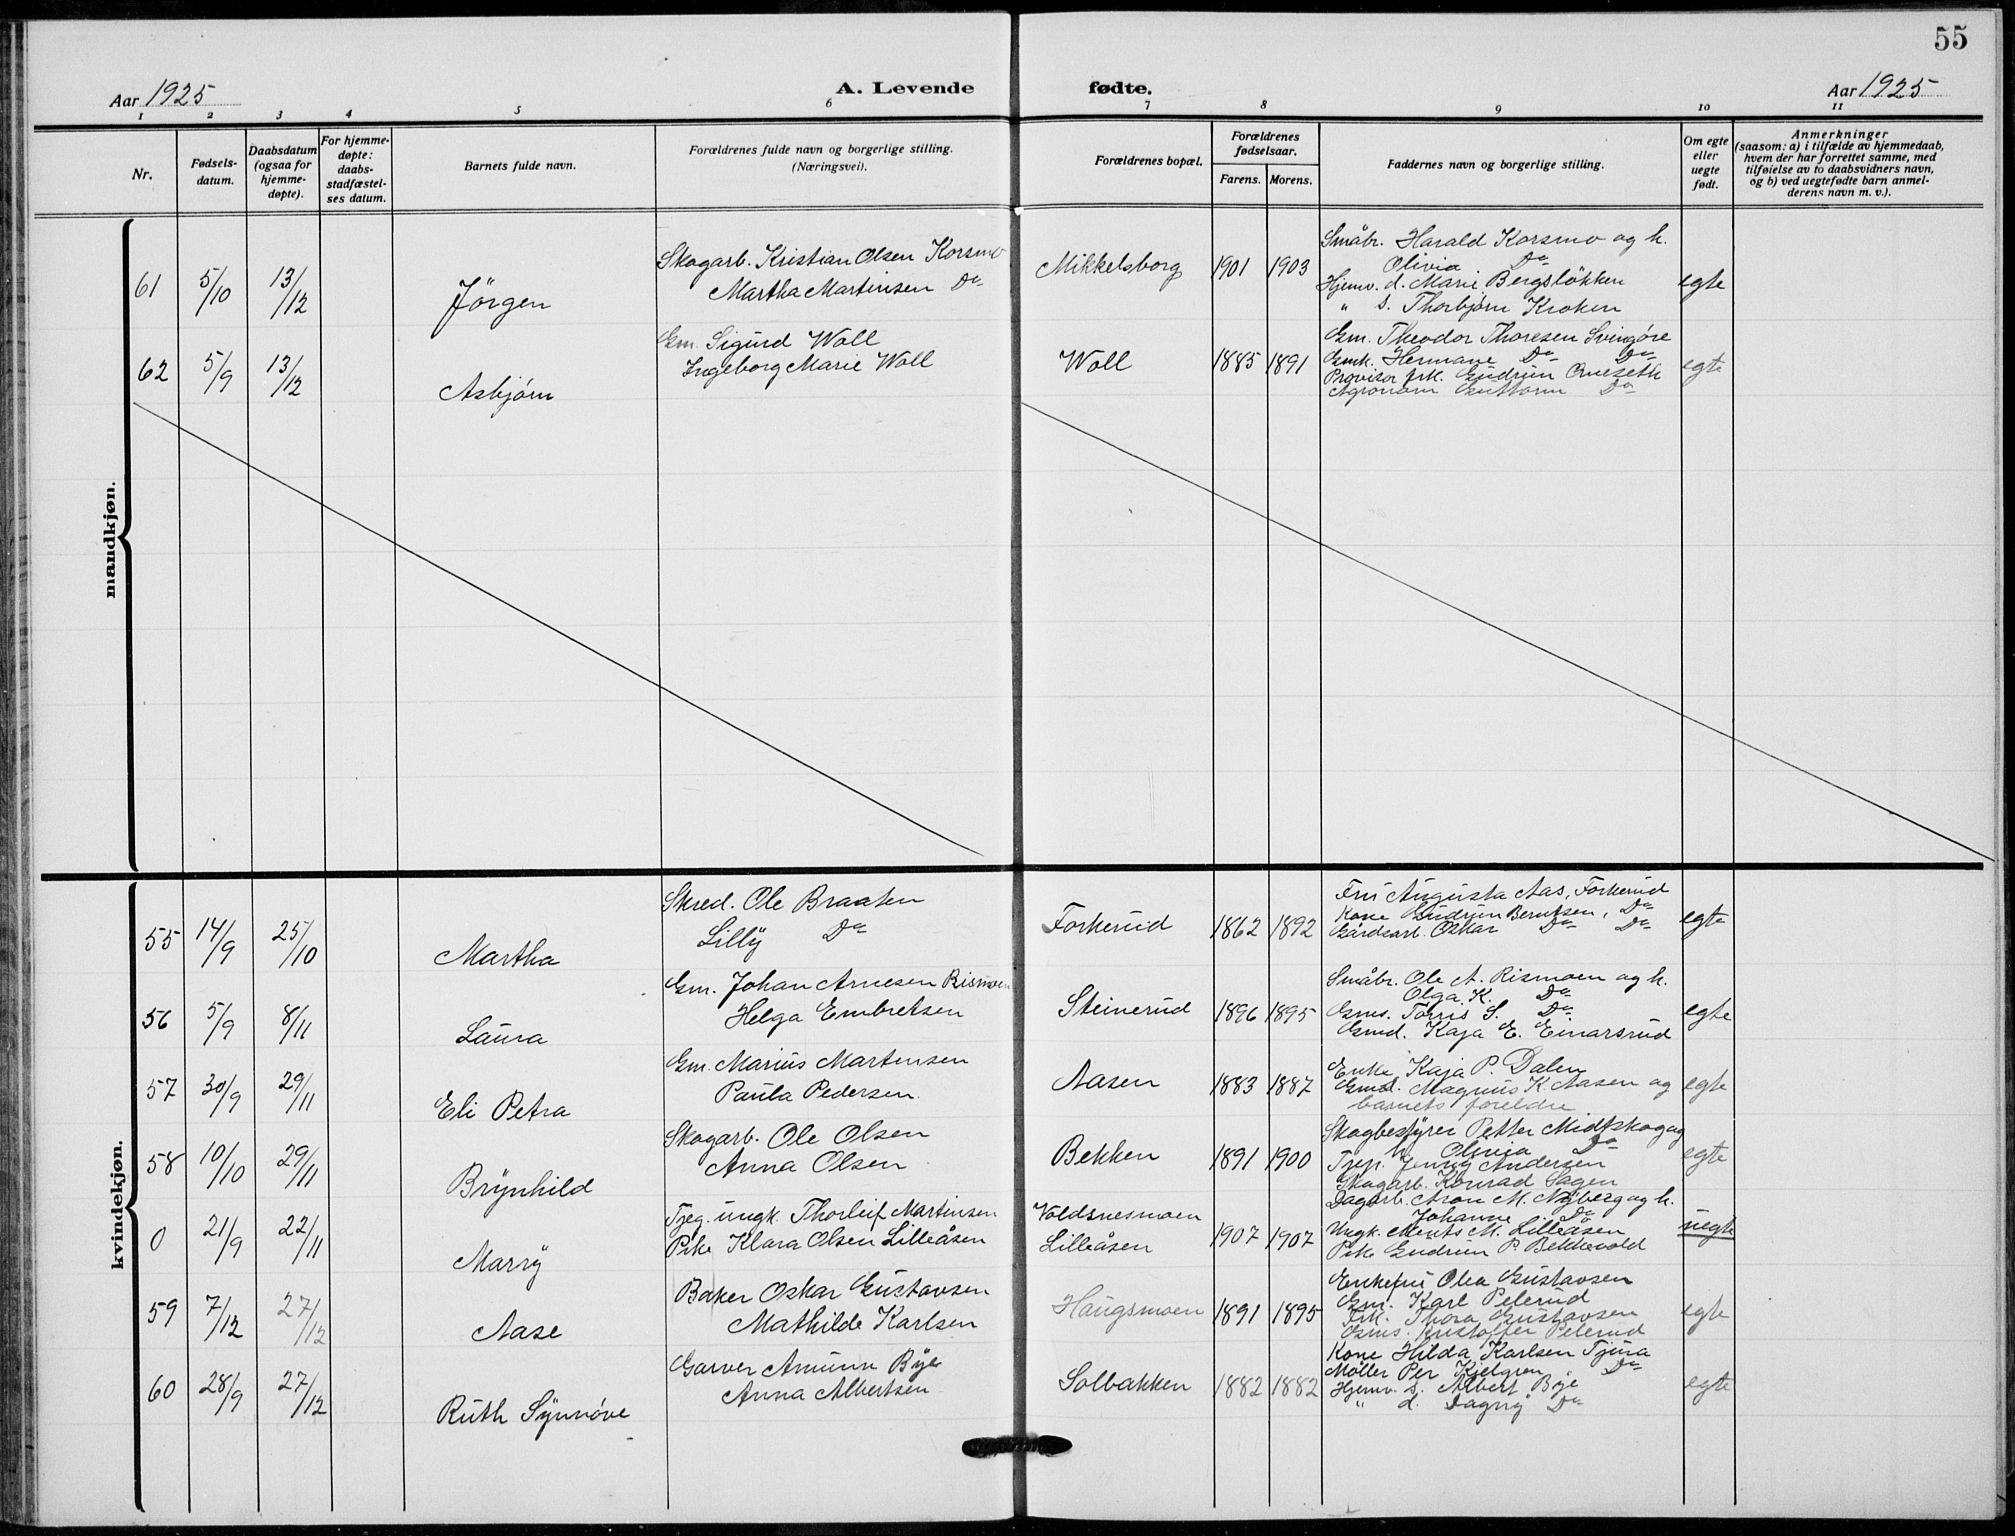 55
Aar 1925
A. Levende fødte.
Aar 1925
1 2 3 4 5 6 7 8 9 10 11
Nr.
Fødsels-
datum.
Daabsdatum
(ogsaa for
hjemme-
døpte).
For hjemme-
døpte:
daabs-
stadfæstel-
ses datum.
Barnets fulde navn.
Forældrenes fulde navn og borgerlige stilling.
(Næringsvei).
Forældrenes bopæl.
Forældrenes
fødselsaar.
Farens. Morens.
Faddernes navn og borgerlige stilling.
Om egte
eller
uegte
født.
Anmerkninger
(saasom: a) i tilfælde av hjemmedaab,
hvem der har forrettet samme, med
tilføielse av to daabsvidners navn,
og b) ved uegtefødte barn anmel-
derens navn m. v.).
mandkjøn.
61 5/10 13/12 Jörgen
Skogarb. Kristian Olsen Korsmo
Martha Martinsen Do
Mikkelsborg 1901 1903
Småbr. Harald Korsmo og h.
Olivia Do
Hjemv. d. Marie Bergsløkken
" s. Thorbjørn Kroken
egte
62 5/9 13/12 Asbjørn
Gm. Sigurd Woll
Ingeborg Marie Woll
Woll 1885 1891
Gm. Theodor Thoresen Svingöre
Gmk. Hermane Do Do
Provisor frk. Gudrun Orneseth
Agronom Guttorm Do
egte
kvindekjøn.
55 14/9 25/10 Martha
Skred. Ole Braaten
Lilly Do
Forkerud 1862 1892
Fru Augusta Aas, Forkerud
Kone Gudrun Berntsen, Do
Gårdsarb. Oskar Do Do
egte
56 5/9 8/11 Laura
Gm. Johan Arnesen Rismoen
Helga Embretsen
Steinerud 1896 1895
Småbr. Ole A. Rismoen og h.
Olga K. Do
Gms. Torris S. Do
Gmd. Kaja E. Einarsrud
egte
57 30/9 29/11 Eli Petra
Gm. Marius Martinsen
Paula Pedersen.
Aasen 1883 1887
Enke Kaja P. Dalen
Gmd. Magnus K. Aasen og
barnets foreldre
egte
58 10/10 29/11 Brynhild
Skogarb. Ole Olsen
Anna Olsen
Bekken 1891 1900
Skogbestyrer Petter Midtskog og
h. Olivia Do
Tjep. Jenny Andersen
Skogarb. Konrad Sagen
egte
0 21/9 22/11 Marry
Tjeg. ungk. Thorleif Martinsen
Pike Klara Olsen Lilleåsen
Voldsnesmoen
Lilleåsen
1907 1907
Dagarb. Aron M. Nyberg og h.
Johanne Do
Ungk. Ments M. Lilleåsen
Pike Gudrun P. Bekkevold
uegte
59 7/12 27/12 Aase
Baker Oskar Gustavsen
Mathilde Karlsen
Haugsmoen 1891 1895
Enkefru Olea Gustavsen
Gm. Karl Pelerud
Frk. Thora Gustavsen
Gms. Kristoffer Pelerud
egte
60 28/9 27/12 Ruth Synnöve
Garver Amunn Bye
Anna Albertsen
Solbakken 1882 1882
Kone Hilda Karlsen Tjura
Møller Per Kjelgren Do
Hjemv. s. Albert Bye
" d. Dagny Do
egte